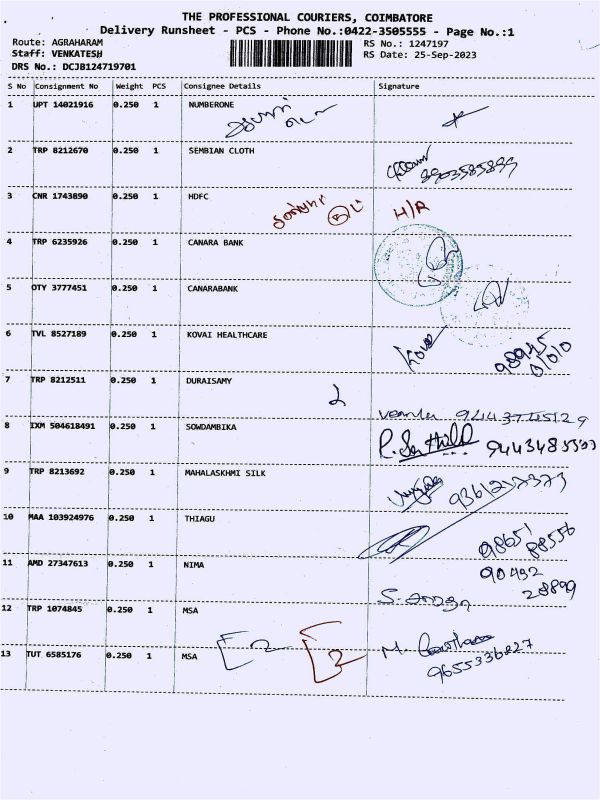 THE PROFESSIONAL COURIERS, COIMBATORE
Delivery Runsheet - PCS - Phone No.:0422-3505555 - Page No.:1
Route: AGRAHARAM RS No.: 1247197
Staff: VENKATESH RS Date: 25-Sep-2023
DRS No.: DCJB124719701
S No Consignment No Weight PCS Consignee Details Signature
1 UPT 14021916 0.250 1 NUMBERONE
2 TRP 8212670 0.250 1 SEMBIAN CLOTH
8903585899
3 CNR 1743890 0.250 1 HDFC H/R
4 TRP 6235926 0.250 1 CANARA BANK
5 OTY 3777451 0.250 1 CANARABANK
6 TVL 8527189 0.250 1 KOVAI HEALTHCARE
7 TRP 8212511 0.250 1 DURAISAMY
8 IXM 504618491 0.250 1 SOWDAMBIKA
R. Senthil
9 TRP 8213692 0.250 1 MAHALASKHMI SILK
10 MAA 103924976 0.250 1 THIAGU
98651
88556
11 AMD 27347613 0.250 1 NIMA
90492
28899
12 TRP 1074845 0.250 1 MSA
13 TUT 6585176 0.250 1 MSA 2 2
9655336827